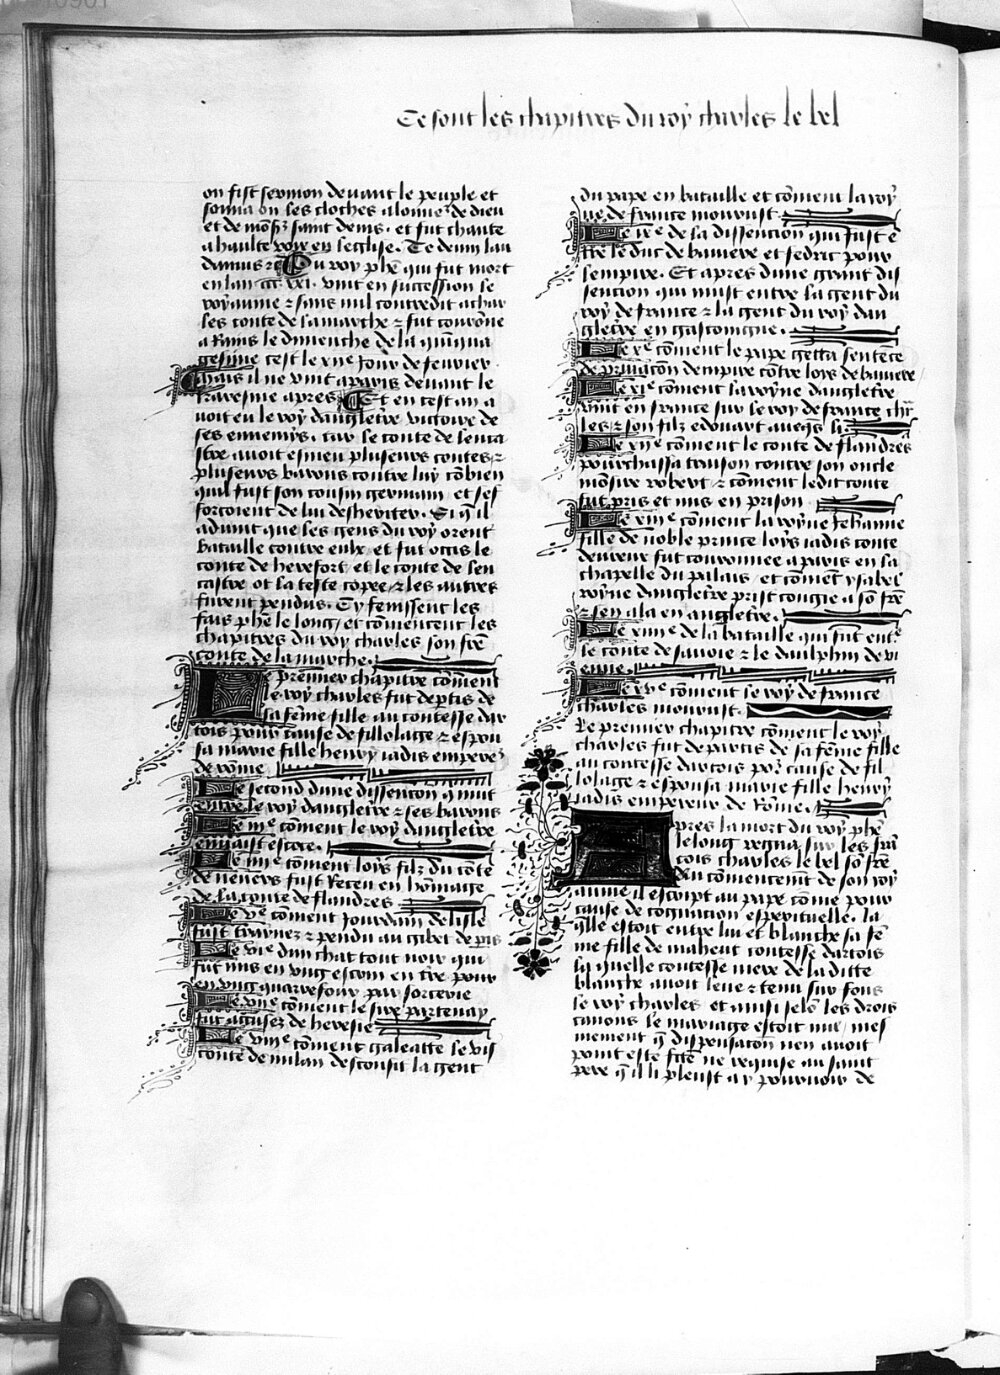 Ce sont les chapitres du roy charles le bel
on fist sermon devant le peuple et
sonna on les cloches alonneʳ de dieu
et de monsʳ saint denis. et fut chante
a haulte voix en leglise. Te deum lau
damus ⁊c Du roy phē qui fut mort
en lan vint en succession le
royaume ⁊ sans nul contredit a char
les conte de la marche ⁊ fut couronne
a Rains le dimenche de la quiqua
gesime cest le xxıᵉ jour de fevrier
Mais il ne vint a paris devant le
karesme apres Et en cest an a
voit eu le roy dangletre victoire de
ses ennemys. car le conte de lenca
stre avoit esmeu pluseurs contes ⁊
pluseurs barons contre luy cōbien
quil fust son cousin germain et ses
forcoient de lui desheriter. Si q̄ il
advint que les gens du roy orent
bataille contre eulx et fut occis le
conte de herefort et le conte de len
castre ot la teste copee ⁊ les autres
furent pendus. Cy fenissent les
fais phē le long et cōmencent les
chapitres du roy charles son frē
conte de la marche.
Le premier chapitre cōment
le roy charles fut deptis de
sa fēme fille au contesse dar
tois pour cause de fillolage ⁊ espou
sa marie fille henry iadis empereʳ
de rōme
Le second dune dissencion q̄ mut
entre le roy dangletre ⁊ ses barons
Le iiiᵉ cōment le roy dangletre
en escoce.
Le iiiiᵉ cōment loys filz du cōte
de nevers fust Receu en hōmage
de la conte de flandres
Le vᵉ cōment Jourdain de lisle
fust traynez ⁊ pendu au gibet de paris
Le viᵉ dun chat tout noir qui
fut mis en ung escrin en tre pour
en ung quarrefour par sorcerie
Le viiᵉ cōment le sire partenay
fut accusez de heresie
Le viiiᵉ cōment galeatte le vis
conte de milan desconfit la gent
du pape en bataille et cōment la roy
ne de france mourust
Le ixᵉ de la dissencion qui fust ē
tre le duc de baviere et fedric pour
lempire. Et apres dune grant dis
sencion qui must entre la gent du
roy de france ⁊ la gent du roy dan
gletre en gascoingne.
Le xᵉ cōment le pape getta sentēce
de privacōn dempire cōtre loys de baviere
Le xiᵉ cōment la royne dangletre
vint en france sur le roy de france char
les ⁊ son filz edouart avecq̄s li
Le xiiᵉ cōment le conte de flandres
pourchassa traison contre son oncle
monsire robert ⁊ cōment ledit conte
fut pris et mis en prison
Le xiiiᵉ cōment la royne Jehanne
fille de noble prince loys iadis conte
devreux fut couronnee a paris en sa
chapelle du palais et cōmēt ysabel
royne dangletre prist congie a sō frē
⁊ sen ala en angletre.
Le xiiiiᵉ de la bataille qui fut entʳ
le conte de savoie ⁊ le daulphin de vi
enne
Le xvᵉ cōment le roy de france
charles mourust.
Le premier chapitre cōment le roy
charles fut departis de sa fēme fille
au contesse dartois poʳ cause de fil
lolage ⁊ espousa marie fille henry
iadis empereur de Rōme.
Apres la mort du roy phē
le long regna sur les frā
cois charles le bel sō frē
Au cōmencement de son roy
aume il escript au pape cōme pour
cause de cognacion esperituelle. la
q̄lle estoit entre lui et blanche sa fē
me fille de mahent contesse dartois
la quelle contesse mere de la ditte
blanche avoit leue ⁊ tenu sur fons
le roy charles et ainsi selō les drois
canons le mariage estoit nul mes
mement q̄ dispensacōn rien avoit
point este fcte ne requise au saint
pere q̄ il li pleust a y pourveoir de